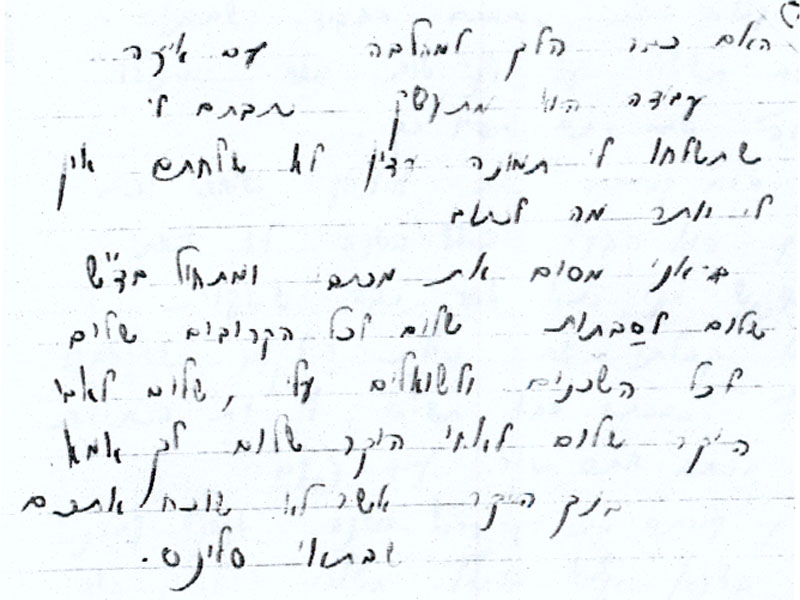 האם כבר הלך למהלבה עם איזה
עבודה הוא מתעסק כתבתם לי
שתשלחו לי תמונה עדין לא שלחתם אין
לי יותר מה לכתוב
אני מסיים את מכתבי ומתחיל בד"ש
שלום לסבתות שלום לכל הקרובים שלום
לכל השכנים ולשואלים עלי, שלום לאבי
היקר שלום לאחי היקר שלום לך אמא
בנך היקר אשר לא שוכח אתכם
שבתאי סלינס.